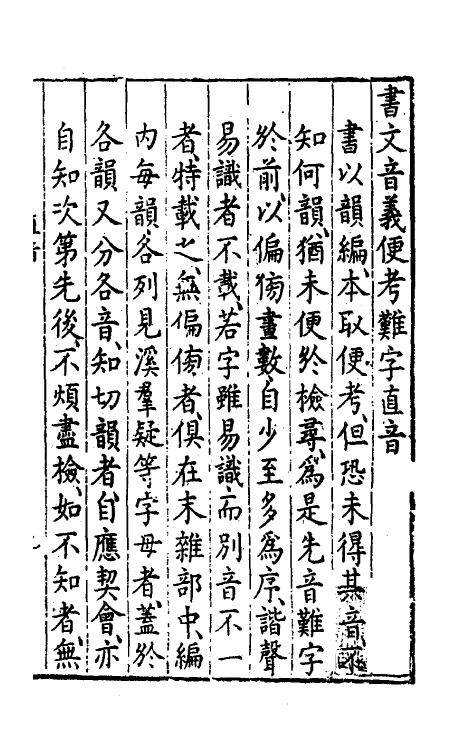 書文音義便考難字直音
書以韻編、本取便考、但恐未得其音、不
知何韻、猶未便於檢尋、爲是先音難字
於前、以偏㫄畫數、自少至多爲序、諧聲
易識者不載、若字雖易識、而別音不一
者、特載之、無偏㫄者、俱在末雜部中、編
内每韻各列見溪羣疑等字母者、蓋於
各韻又分各音、知切韻者、自應契會、亦
自知次第先後、不煩盡檢、如不知者、無
直音